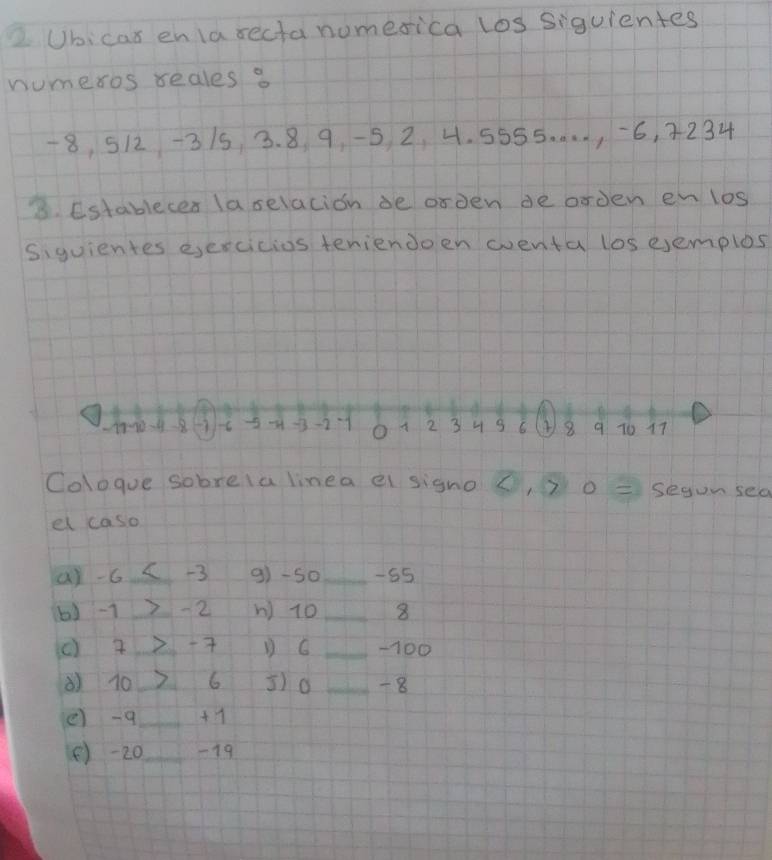 2 Ubicar en la recta numerica los siguientes
numeros reales :
-8, 5/2, -3/5, 3.8, 9, -5, 2, 4.5555...., -6, 7234
3. Establecer la relación de orden de orden en los
siguientes ejercicios teniendo en cuenta los ejemplos
-11 -10 -9 -8 -7 -6 -5 -4 -3 -2 -1 0 1 2 3 4 5 6 7 8 9 10 11
Coloque sobre la linea el signo <, > o = segun sea
el caso
a) -6 < -3 g) -50 ___ -55
b) -1 > -2 h) 10 ___ 8
c) 7 > -7 i) 6 ___ -100
d) 10 > 6 J) 0 ___ -8
e) -9 ___ +1
f) -20 ___ -19